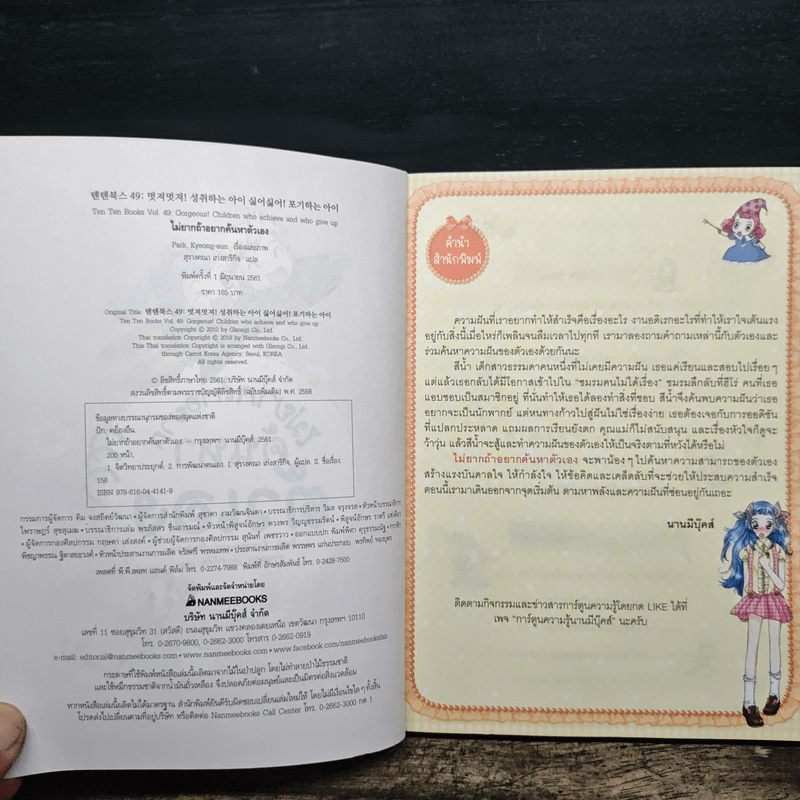 텐텐북스 49: 멋져멋져! 성취하는 아이 싫어싫어! 포기하는 아이
Ten Ten Books Vol. 49: Gorgeous! Children who achieve and who give up
ไม่ยากถ้าอยากค้นหาตัวเอง
Park, Kyeong-eun เรื่องและภาพ
สุรางคณา เก่งสาริกิจ แปล
พิมพ์ครั้งที่ 1 มิถุนายน 2561
ราคา 165 บาท
Original Title: 텐텐북스 49: 멋져멋져! 성취하는 아이 싫어싫어! 포기하는 아이
Ten Ten Books Vol. 49: Gorgeous! Children who achieve and who give up
Copyright © 2010 by Glsongi Co., Ltd.
Thai translation Copyright © 2018 by Nanmeebooks Co., Ltd.
This Thai translation Copyright is arranged with Glsongi Co., Ltd.,
through Carrot Korea Agency, Seoul, KOREA
All rights reserved.
© ลิขสิทธิ์ภาษาไทย 2561: บริษัท นานมีบุ๊คส์ จำกัด
สงวนลิขสิทธิ์ตามพระราชบัญญัติลิขสิทธิ์ (ฉบับเพิ่มเติม) พ.ศ. 2558
ข้อมูลทางบรรณานุกรมของหอสมุดแห่งชาติ
ปัก, คย็องอึน.
ไม่ยากถ้าอยากค้นหาตัวเอง. – กรุงเทพฯ: นานมีบุ๊คส์, 2561.
200 หน้า.
1. จิตวิทยาประยุกต์. 2. การพัฒนาตนเอง. I สุรางคณา เก่งสาริกิจ, ผู้แปล. II. ชื่อเรื่อง.
158
ISBN 978-616-04-4141-9
เพลตที่ พี.พี.เพลท แอนด์ ฟิล์ม โทร. 0-2274-7988 พิมพ์ที่ อักษรสัมพันธ์ โทร. 0-2428-7500
จัดพิมพ์และจัดจำหน่ายโดย
NANMEEBOOKS
บริษัท นานมีบุ๊คส์ จำกัด
เลขที่ 11 ซอยสุขุมวิท 31 (สวัสดี) ถนนสุขุมวิท แขวงคลองเตยเหนือ เขตวัฒนา กรุงเทพฯ 10110
โทร. 0-2670-9800, 0-2662-3000 โทรสาร 0-2662-0919
e-mail: editorial@nanmeebooks.com • www.nanmeebooks.com • www.facebook.com/nanmeebooksfan
กระดาษที่ใช้พิมพ์หนังสือเล่มนี้ผลิตมาจากไม้ในป่าปลูก โดยไม่ทำลายป่าไม้ธรรมชาติ
และใช้หมึกธรรมชาติจากน้ำมันถั่วเหลือง จึงปลอดภัยต่อมนุษย์และเป็นมิตรต่อสิ่งแวดล้อม
หากหนังสือเล่มนี้ผลิตไม่ได้มาตรฐาน สำนักพิมพ์ยินดีรับผิดชอบเปลี่ยนเล่มใหม่ให้ โดยไม่มีเงื่อนไขใดๆ ทั้งสิ้น
โปรดส่งไปเปลี่ยนตามที่อยู่บริษัท หรือติดต่อ Nanmeebooks Call Center โทร. 0-2662-3000 กด 1
คำนำ
สำนักพิมพ์
ความฝันที่เราอยากทำให้สำเร็จคือเรื่องอะไร งานอดิเรกอะไรที่ทำให้เราใจเต้นแรง
อยู่กับสิ่งนี้เมื่อไหร่ก็เพลินจนลืมเวลาไปทุกที เรามาลองถามคำถามเหล่านี้กับตัวเองและ
ร่วมค้นหาความฝันของตัวเองด้วยกันนะ
สีน้ำ เด็กสาวธรรมดาคนหนึ่งที่ไม่เคยมีความฝัน เธอแค่เรียนและสอบไปเรื่อยๆ
แต่แล้วเธอกลับได้มีโอกาสเข้าไปใน “ชมรมคนไม่ได้เรื่อง” ชมรมลึกลับที่ฮีโร่ คนที่เธอ
แอบชอบเป็นสมาชิกอยู่ ที่นั่นทำให้เธอได้ลองทำสิ่งที่ชอบ สีน้ำจึงค้นพบความฝันว่าเธอ
อยากจะเป็นนักพากย์ แต่หนทางก้าวไปสู่ฝันไม่ใช่เรื่องง่าย เธอต้องเจอกับการออดิชัน
ที่แปลกประหลาด แถมผลการเรียนยังตก คุณแม่ก็ไม่สนับสนุน และเรื่องหัวใจก็ดูจะ
ว้าวุ่น แล้วสีน้ำจะสู้และทำความฝันของตัวเองให้เป็นจริงตามที่หวังได้หรือไม่
ไม่ยากถ้าอยากค้นหาตัวเอง จะพาน้องๆ ไปค้นหาความสามารถของตัวเอง
สร้างแรงบันดาลใจ ให้กำลังใจ ให้ข้อคิดและเคล็ดลับที่จะช่วยให้ประสบความสำเร็จ
ตอนนี้เรามาเดินออกจากจุดเริ่มต้น ตามหาพลังและความฝันที่ซ่อนอยู่กันเถอะ
นานมีบุ๊คส์
ติดตามกิจกรรมและข่าวสารการ์ตูนความรู้โดยกด LIKE ได้ที่
เพจ “การ์ตูนความรู้นานมีบุ๊คส์” นะครับ